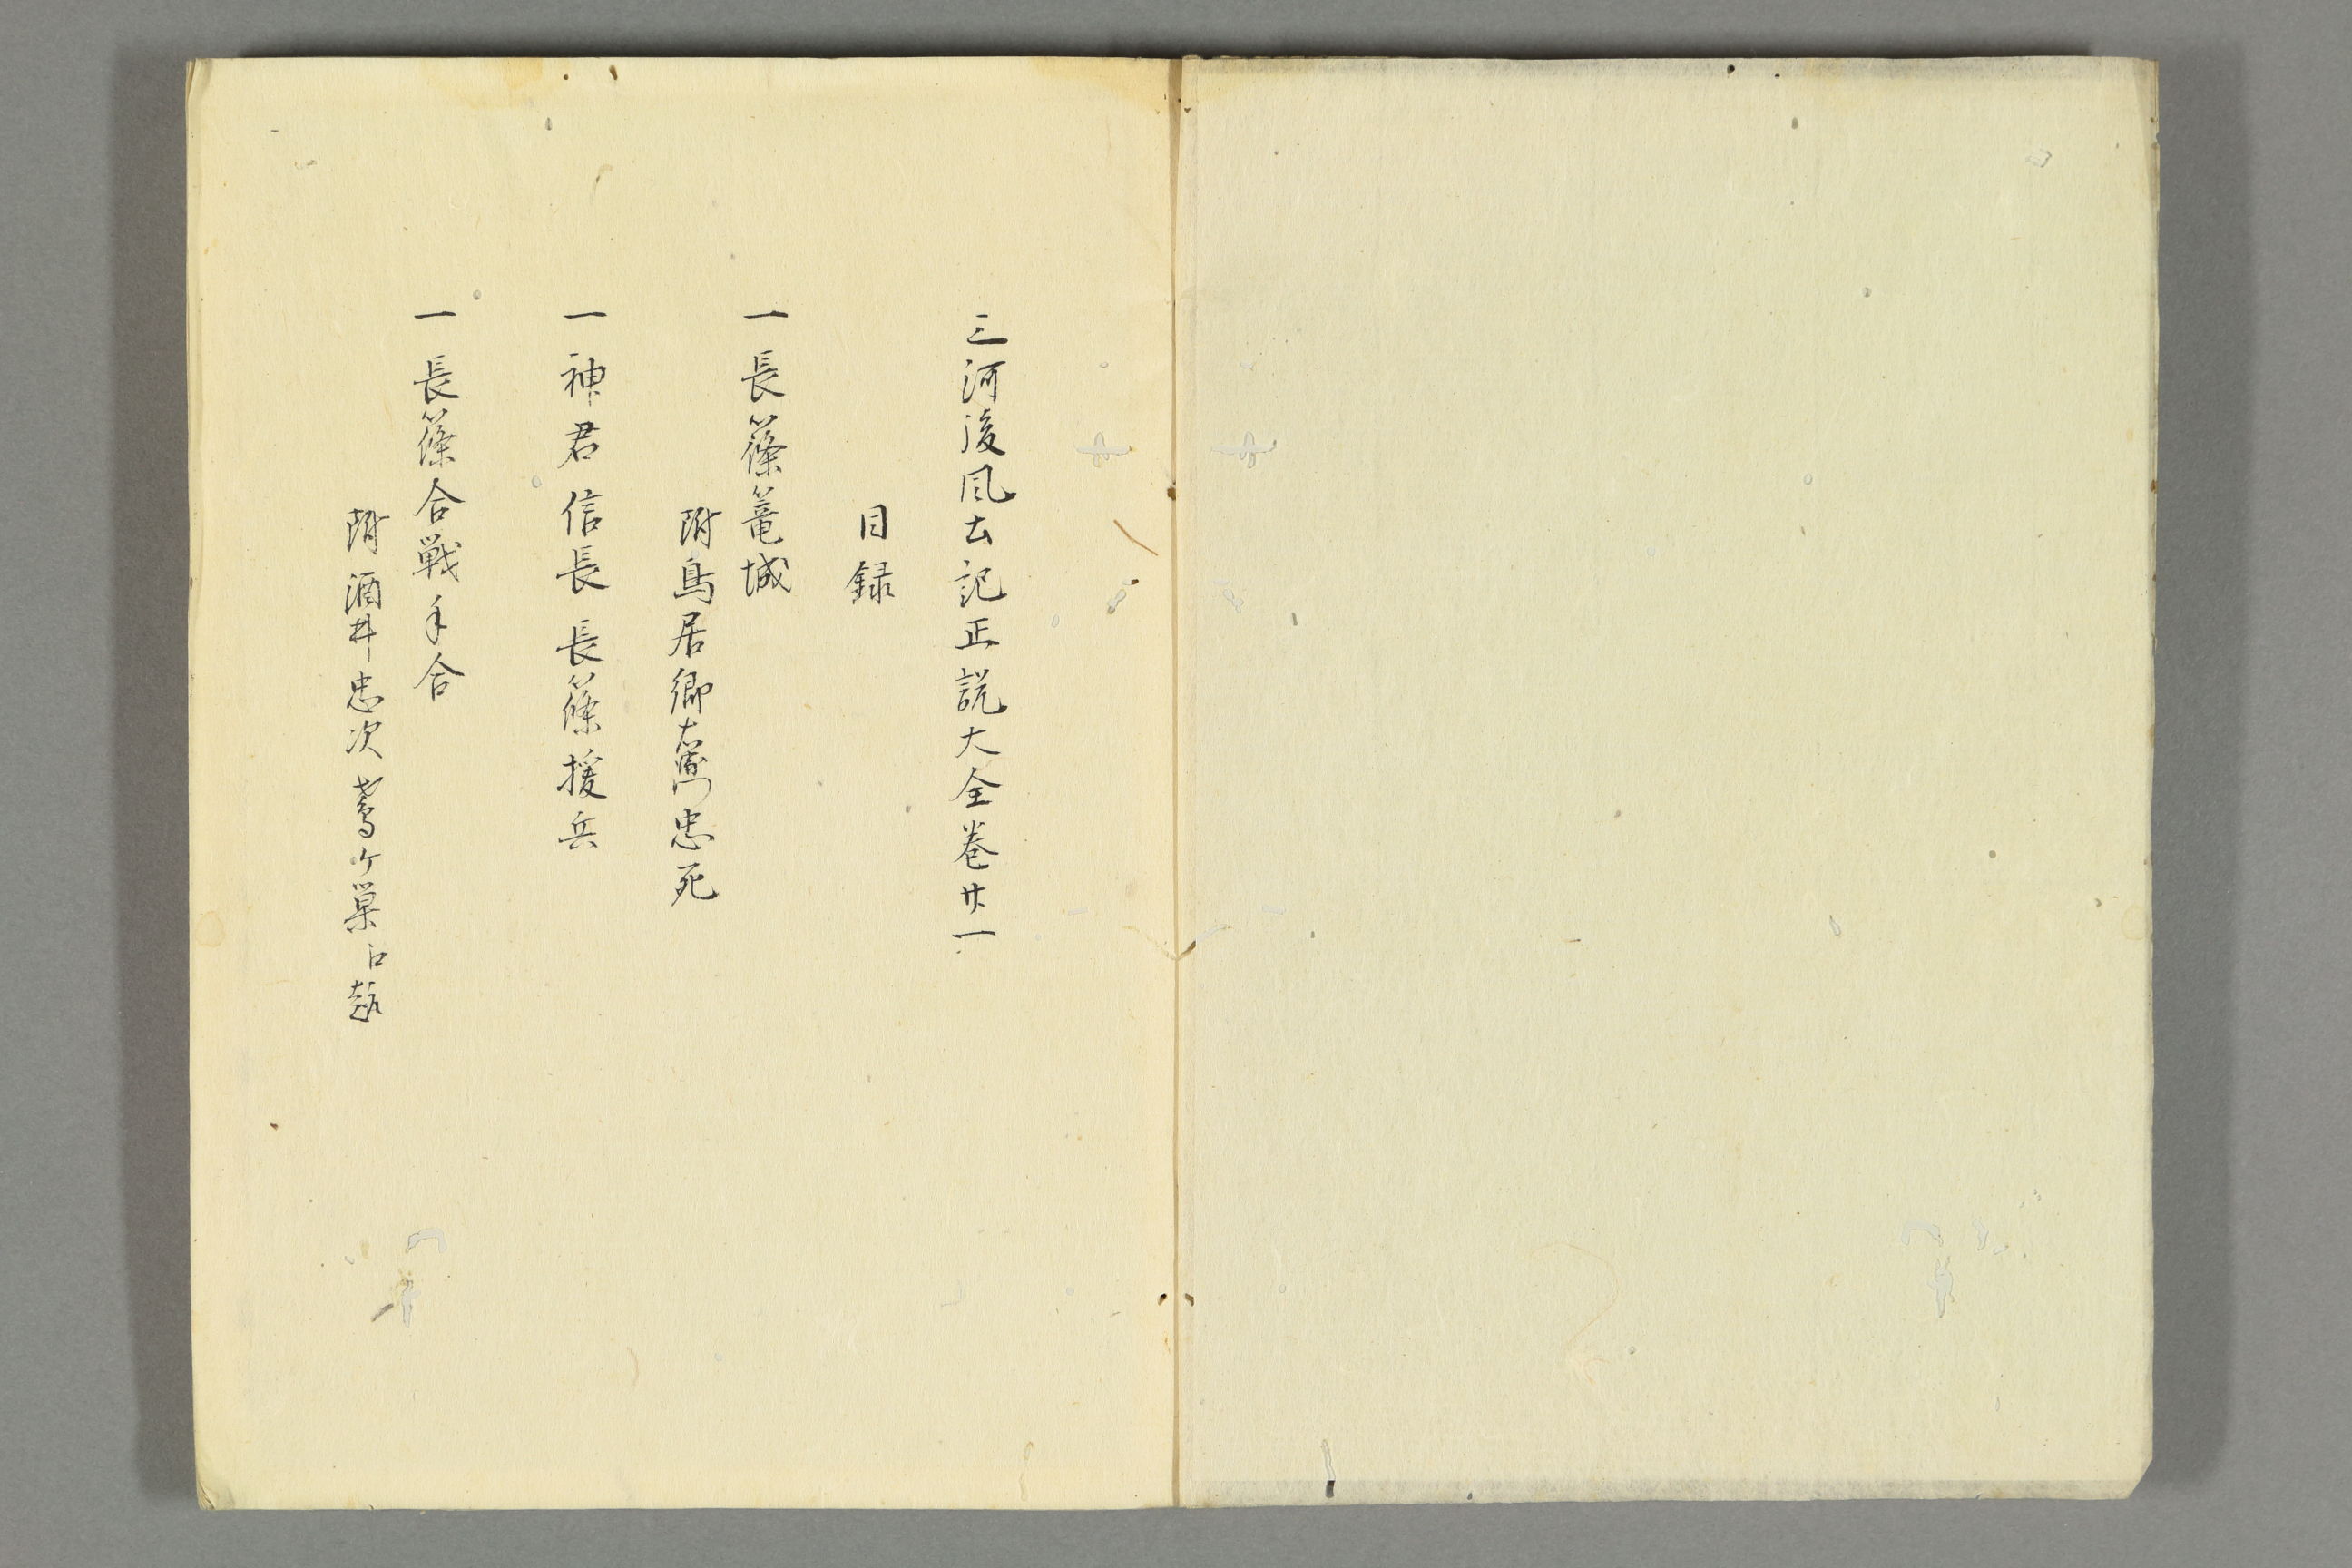 三河後風土記正説大全巻廿一
目録
一長篠篭城
附鳥居郷右衛門忠死
一神君信長長篠援兵
一長篠合戦手合
附酒井忠次鳶ヶ巣